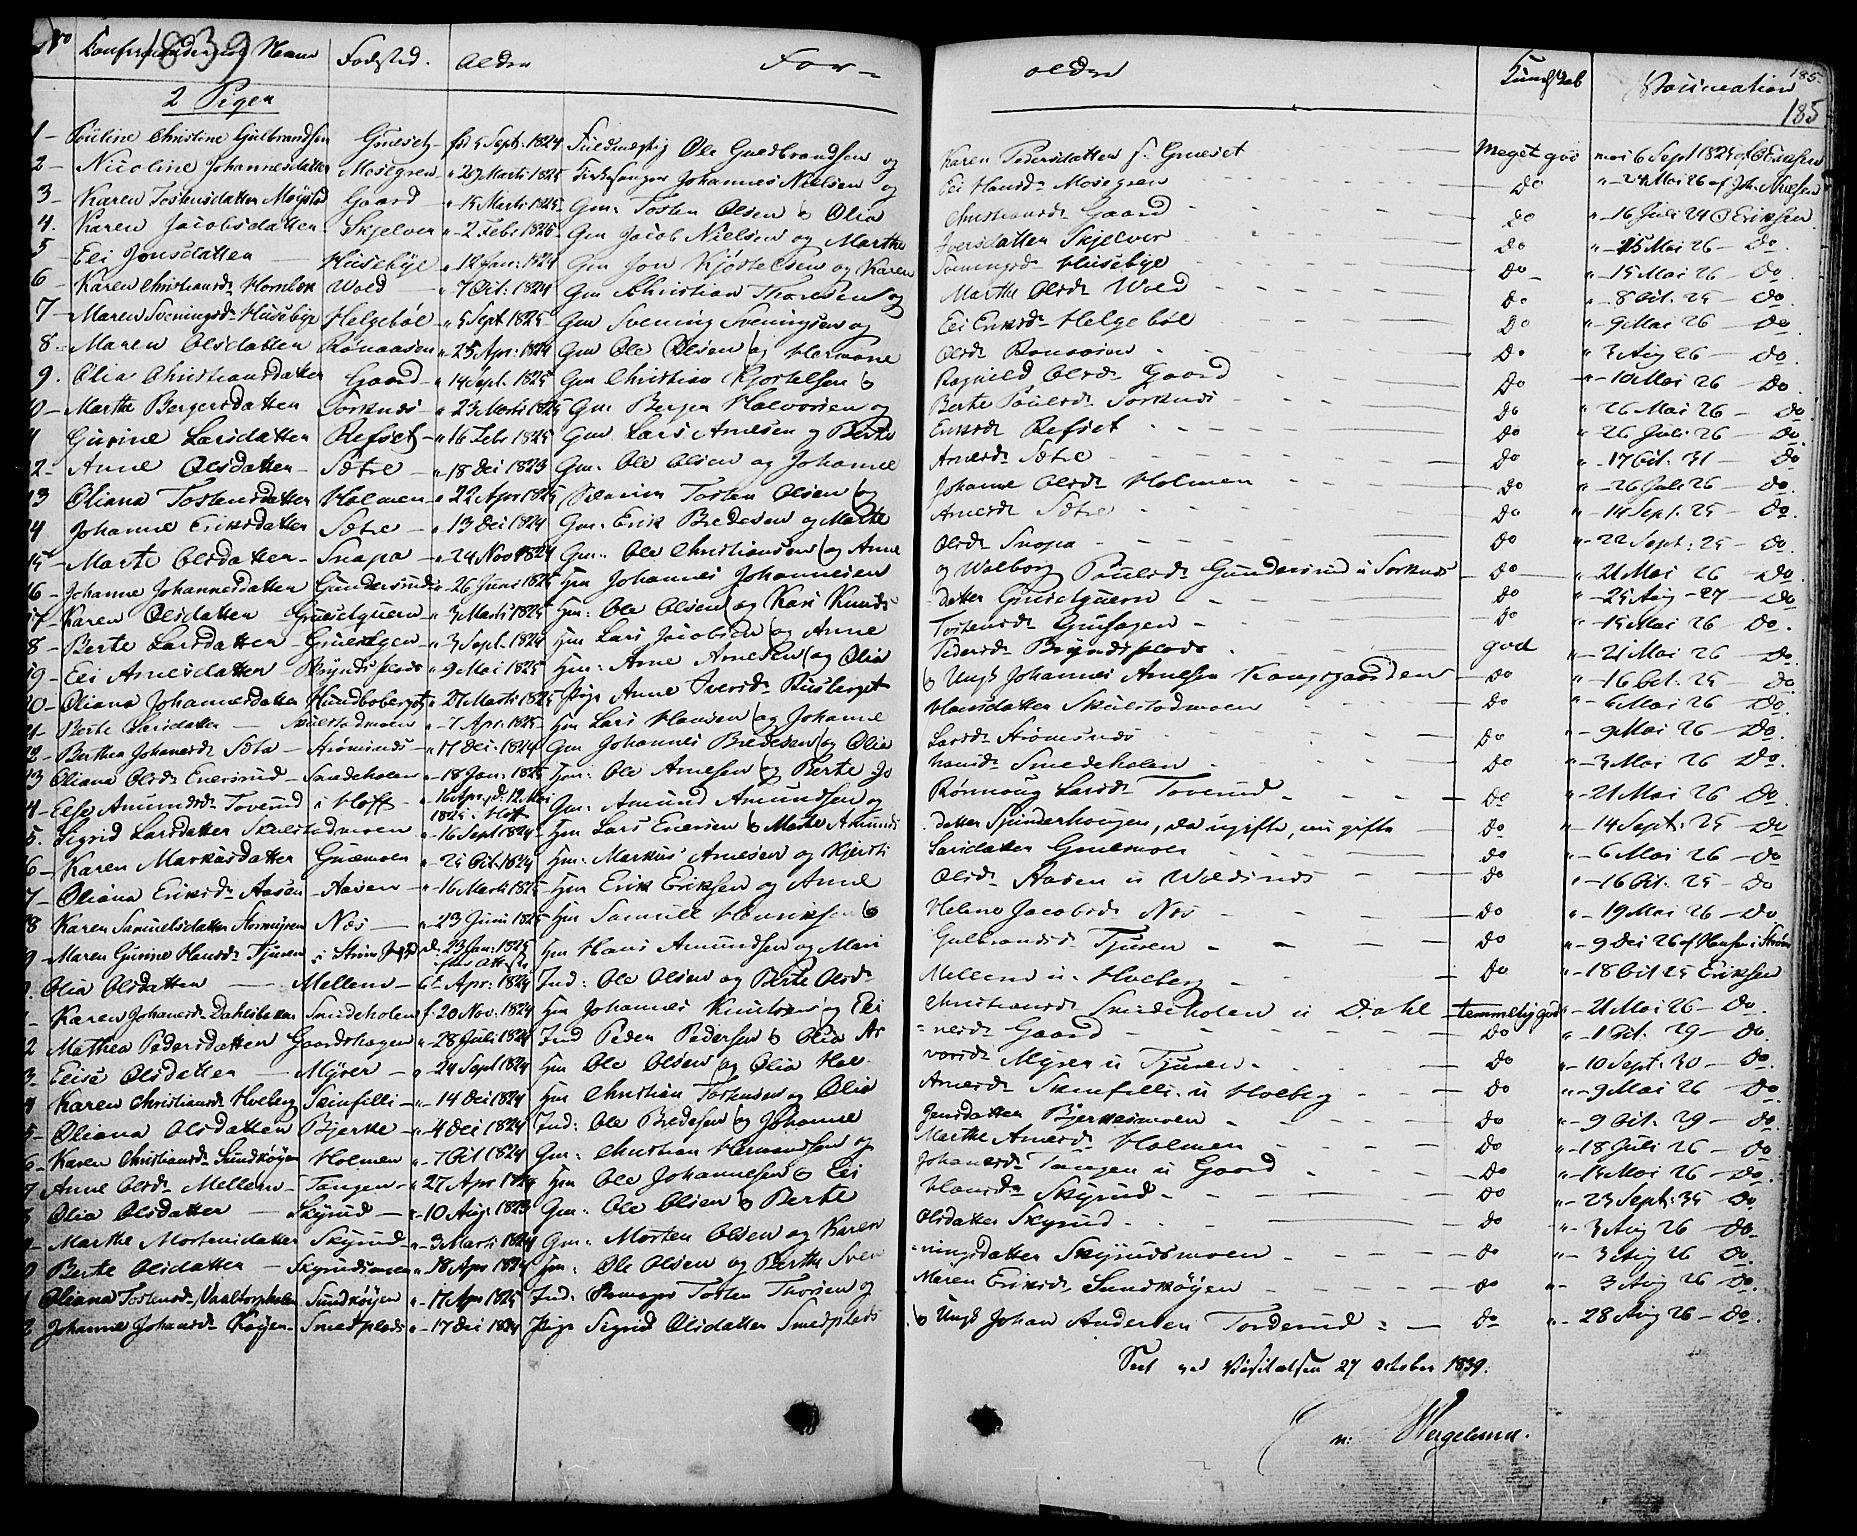 1839
No Confirmandernes Navn Fodsted. Alder For- ældre Kundskab Vaccination
185
185
2 Piger
1- Pouline Christine Gulbrandsen Grueset fød 5 Sept: 1824 Fuldmægtig Ole Guldbrandsen og Karen Pedersdatter f. Grueset Meget god 6 Sept 1825 af O Eriksen
2- Nicoline Johannesdatter Mosegren " 29 Marti 1825 Kirkesanger Johannes Nielsen og Eli Hansdr Mosegren Do "-24 Mai 26 af Joh: Nielsen
3- Karen Tostensdatter Gaard " 15 Marti 1825 Gm: Tosten Olsen & Olia Christiansdr Gaard Do "-16 Juli 24 O Eriksen
4. Karen Jacobsdatter Skjelver " 2 Febr 1825 Gm Jacob Nielsen og Marthe Iversdatter Skjelver Do "-15 Mai 26 - Do.
5 Eli Jonsdatter Husebye " 12 Jan: 1824 Gm Jon Kjøstelsen og Karen Sveningsdr Husebye Do "-15 Mai 26 - Do.
6- Karen Christiansdr Hornbæk Wold " 7 Oct: 1824 Gm Christian Thoresen og Marthe Olsdr Wold Do "-8 Oct. 25 - Do
7- Maren Sveningsdr Husebye Helgebøl " 5 Sept 1825 Gm Svening Sveningsen og Eli Eriksdr Helgebøl Do "-9 Mai 26 - Do
8.- Maren Olsdatter Rønaasen " 25 Apr: 1824 Gm Ole Olsen og Hermone Olsdr Ronaasen Do " 3 Aug 26 - Do.
9. Olia Christiansdatter Gaard " 14 Sept. 1825 Gm Christian Kjøstelsen & Ragnild Olsdr Gaard Do "-10 Mai 26 - Do
10- Marthe Bergersdatter Sorknæs " 23 Marti 1825 Gm Berger Halvorsen og Berte Poulsdr Sorknæs Do " 26 Mai 26 - Do
11 Gurine Larsdatter Refset " 16 Febr 1825 Gm Lars Arnesen og Berte Eriksdr Refset Do " 26 Juli 26 - Do.
12- Anne Olsdatter Sætre " 18 Dec 1823 Gm: Ole Olsen og Johanne Arnesdr Sætre Do "-17 Oct. 31 - Do
13 Oliana Tostensdatter Holmen " 22 Apr 1825 Tosten Olsen og Johanne Olsdr Holmen Do "-26 Juli 26 - Do.
14 Johanne Eriksdatter Sætre " 13 Dec 1824 Gm: Erik Bredesen og Marte Arnesdr Sætre Do "-14 Sept. 25 - Do.
15- Marte Olsdatter Snapa " 24 Nov 1824 Gm: Ole Christiansen og Anne Olsdr Snapa Do "-22 Sept: 25 - Do.
16- Johanne Johannesdatter Gundersrud " 26 Juni 1825 Hm Johannes Johannesen og Walborg Poulsdr Gundersrud u Sorknæs Do "-21 Mai 26 - Do
17- Karen Olsdatter Gruesetquern " 3 Marti 1825 Hm: Ole Olsen og Kari Knuds datter Gruesetquern Do "-25 Aug -27 - Do
18- Berte Larsdatter " 3 Sept. 1824 Hm Lars Jacobsen og Anne Tostensdr Do "-15 Mai 26 Do.
19- Eli Arnesdatter Bryndsplads " 9 Mai 1825 Hm: Arne Arnesen og Olia Pedersdr Bryndsplads god "-21 Mai 26 - Do
20- Oliana Johannesdatter Hundboberget " 27 Marti 1825 Pige Anne Iversdr Busberget & Ungk Johannes Arnesen Kongsgaarden Do "-16 Oct. 25 - Do
21- Berte Larsdatter Skulstadmoen " 7 Apr. 1825 Hm Lars Hansen og Johanne Hansdatter Skulstadmoen Do "-6 Mai 26 - Do.
22- Berthea Johansdr Sæter Strømsnæs " 17 Dec: 1824 Gm Johannes Bredesen og Olia Larsdr Strømsnæs Do "-9 Mai 26 - Do.
23 Oliana Olsdr Enersrud Smedeholen " 18 Jan: 1825 Hm: Ole Arnesen og Berte Jo hansdr Smedeholen Do "-3 Mai 26 Do.
24- Else Amundsdr Toverud i Hoff " 16 Apr, d: 12 Mai 1825 i Hoff Gm: Amund Amundsen og Rønnoug Larsdr Toverud Do "-21 Mai 26 Do
25. Sigrid Larsdatter Skulstadmoen " 16 Sept 1824 Hm Lars Enersen & Marte Amunds datter Spinderhougen, da ugifte, nu gifte Do "-14 Sept: 25 - Do
26- Karen Markusdatter Gruemoen " 25 Oct. 1824 Hm: Markus Arnesen og Kjersti Larsdatter Gruemoen Do "-6 Mai 26 - Do
27- Oliana Eriksdr Aasen Aasen " 16 Marti 1825 Hm Erik Eriksen og Anne Olsdr Aasen u Woldsnæs Do "-16 Oct. 25 - Do
28 Karen Samuelsdatter Næs " 23 Juni 1825 Hm Samuel Henriksen & Helene Jacobsdr Næs Do "-19 Mai 26 - Do.
29- Maren Gurine Hansdr Tjuren i Strøm d: 23 Jan: 1825 efter Attest Hm Hans Amundsen og Mari Gulbrandsdr Tjuren Do "-9 Dec 26 af Hansen i Strøm
30. Olia Olsdatter Mellem 6 Apr: 1824 Ind: Ole Olsen og Berte Olsdr Mellem u. Hveberg Do "-18 Oct 25 Eriksen
31- Karen Johansdr Dahlsbakken Smedeholen f. 20 Nov. 1824 Hm Johannes Knudsen og Eli Christiansdr Smedeholen u Dahl temmelig god "-21 Mai 26 - Do.
32 Mathea Pedersdatter Gaardshagen " 28 Juli 1824 Ind Peder Pedersen & Olia Ar nesdr Gaard Do "-1 Oct. 29 - Do.
33- Elise Olsdatter Myrer " 24 Sept 1824 Hm Ole Olsen og Olia Hal- vorsdr Myren u Tjuren Do "-10 Sept: 30 - Do.
34 Karen Christiansdr Hveberg Skinfelli " 14 Dec 1824 Hm Christian Tostensen og Olia Arnesdr Skinfelli u Hveberg Do "-9 Mai 26 - Do
35- Oliana Olsdatter Bjerke " 4 Dec 1824 Ind: Ole Bredesen og Johanne Jensdatter Bjerkesmoen Do "-9 Oct. 29 - Do.
36- Karen Christiansdr Sundkøyen Holmen " 7 Oct 1824 Gm: Christian Hermandsen og Marthe Arnesdr Holmen Do "-18 Juli 26 - Do
37 Anne Olsdr Mellem Tangen " 27 Apr 1824 Hm Ole Johannesen & Eli Johansdr Tangen u Gaard Do "-15 Mai 26 - Do.
38 Olia Olsdatter Skyrud " 10 Aug. 1823 Gm: Ole Olsen & Berte Hansdr Skyrud Do "-23 Sept: 35 - Do
39- Marthe Mortensdatter Skyrud " 3 Marti 1824 Gm: Morten Olsen og Karen Olsdatter Skyrud Do "-3 Aug 26 - Do
40 Berte Olsdatter Skyrudsmoen " 18 Apr 1824 Hm: Ole Olsen og Berthe Sven ningsdatter Skyrudsmoen Do "-3 Aug 26 Do.
41 Oliana Tostensdr Sundkøyen " 17 Apr 1825 Ind: Tosten Thorsen og Maren Eriksdr Sundkøyen Do " 3 Aug 26 Do.
42 Johanne Johansdr Køyen Smedplads " 17 Dec 1824 Pige Sigrid Olsdatter Smedplads & Ungk Johan Andersen Torderud Do "-28 Aug 26 - Do.
Seet ved Visitatsen 27 October 1839.
n: Wergeland.